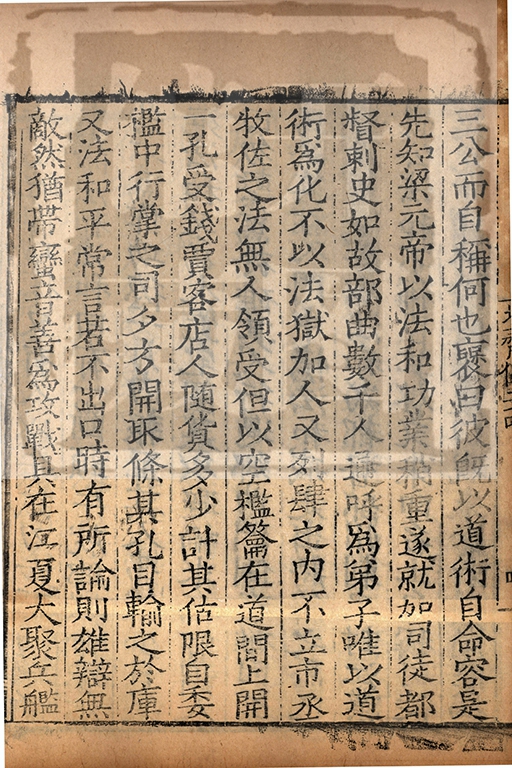 三公而自稱何也褒曰彼既以道術自命容是
先知梁元帝以法和功業稍重遂就加司徒都
督刺史如故部曲數千人通呼爲弟子唯以道
術爲化不以法獄加人又列肆之内不立市丞
牧佐之法無人領受但以空檻籥在道間上開
一孔受錢賈客店人隨貨多少計其估限自委
檻中行掌之司夕方開取條其孔目輸之於庫
又法和平常言若不出口時有所論則雄辯無
敵然猶帶蠻音善爲攻戰具在江夏大聚兵艦